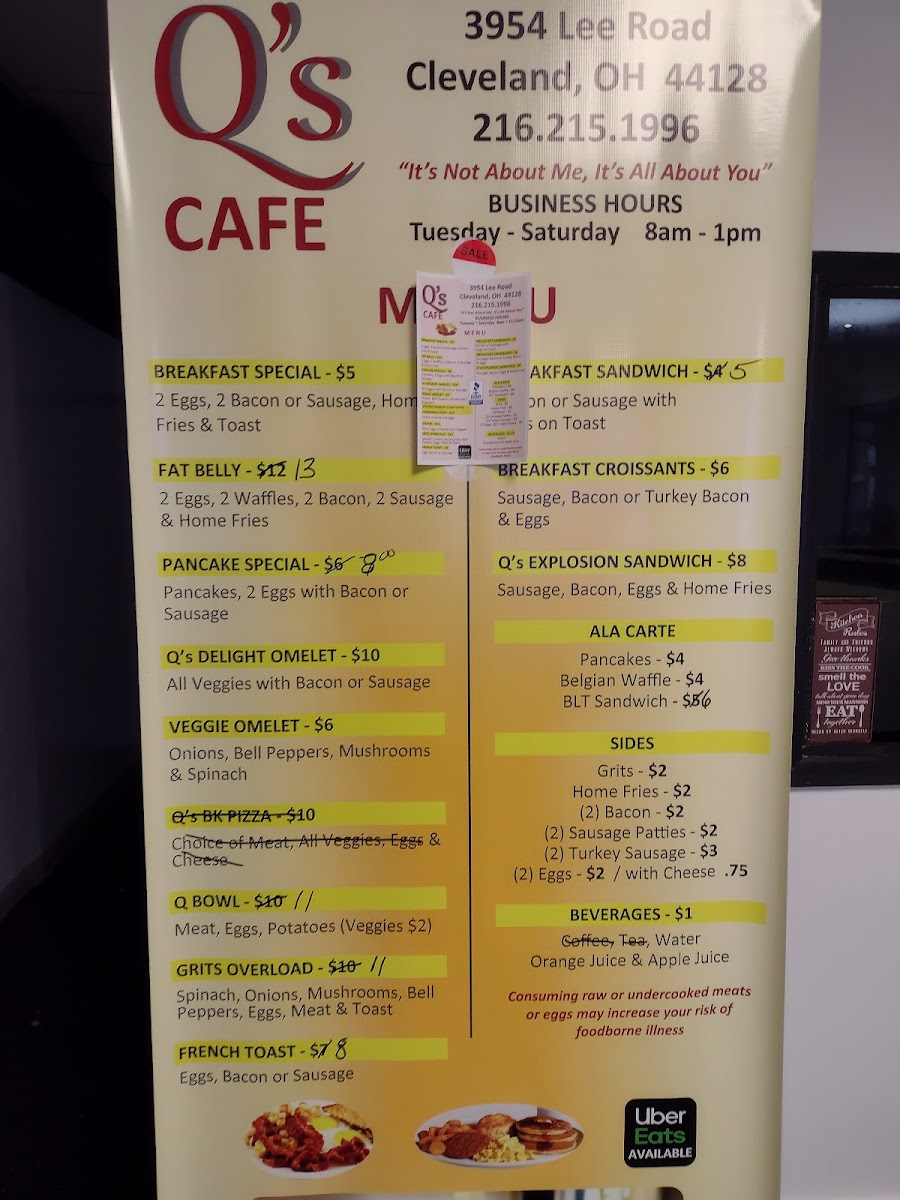 Q's
CAFE
3954 Lee Road
Cleveland, OH 44128
216.215.1996
“It’s Not About Me, It’s All About You”
BUSINESS HOURS
Tuesday - Saturday 8am - 1pm
SALE
Q's
CAFE
3954 Lee Road
Cleveland, OH 44128
216.215.1996
MENU
Uber
M U
BREAKFAST SPECIAL - $5
2 Eggs, 2 Bacon or Sausage, Hom
Fries & Toast
FAT BELLY - $12 13
2 Eggs, 2 Waffles, 2 Bacon, 2 Sausage
& Home Fries
PANCAKE SPECIAL - $6 8.00
Pancakes, 2 Eggs with Bacon or
Sausage
Q’s DELIGHT OMELET - $10
All Veggies with Bacon or Sausage
VEGGIE OMELET - $6
Onions, Bell Peppers, Mushrooms
& Spinach
Q’s BK PIZZA - $10
Choice of Meat, All Veggies, Eggs &
Cheese
Q BOWL - $10 11
Meat, Eggs, Potatoes (Veggies $2)
GRITS OVERLOAD - $10 11
Spinach, Onions, Mushrooms, Bell
Peppers, Eggs, Meat & Toast
FRENCH TOAST - $7 8
Eggs, Bacon or Sausage
AKFAST SANDWICH - $4 5
on or Sausage with
s on Toast
BREAKFAST CROISSANTS - $6
Sausage, Bacon or Turkey Bacon
& Eggs
Q’s EXPLOSION SANDWICH - $8
Sausage, Bacon, Eggs & Home Fries
ALA CARTE
Pancakes - $4
Belgian Waffle - $4
BLT Sandwich - $5 6
SIDES
Grits - $2
Home Fries - $2
(2) Bacon - $2
(2) Sausage Patties - $2
(2) Turkey Sausage - $3
(2) Eggs - $2 / with Cheese .75
BEVERAGES - $1
Coffee, Tea, Water
Orange Juice & Apple Juice
Consuming raw or undercooked meats
or eggs may increase your risk of
foodborne illness
Uber
Eats
AVAILABLE
Kitchen
Rules
FAMILY AND FRIENDS
ALWAYS WELCOME
Give thanks
KISS THE COOK
smell the
LOVE
talk about your day
MIND YOUR MANNERS
EAT
together